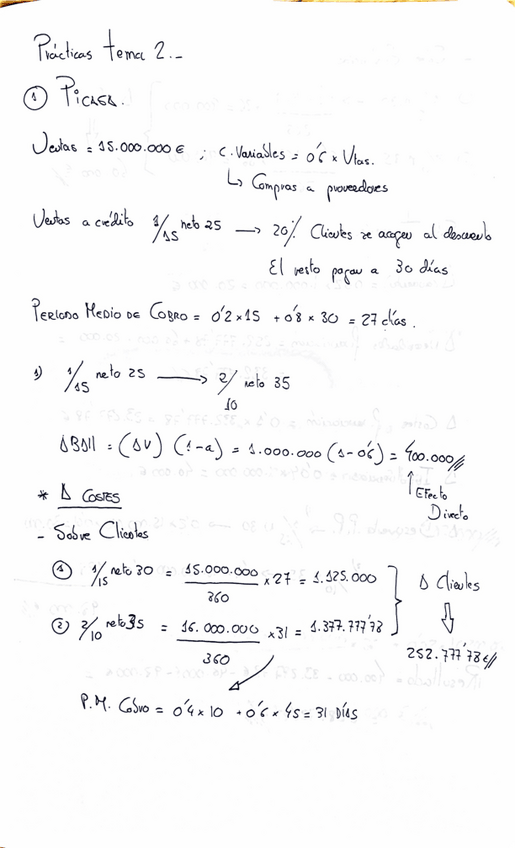 Prácticas tema 2.-
① PICASA.
Ventas = 15.000.000 € ; C. Variables = 0'6 × Vtas.
↳ Compras a proveedores
Ventas a crédito 1/15 neto 25 → 20% Clientes se acogen al descuento
El resto pagan a 30 días
PERÍODO MEDIO DE COBRO = 0'2 × 15 + 0'8 × 30 = 27 días.
1) 1/15 neto 25 → 2/10 neto 35
Δ BAII = (ΔV) (1-a) = 1.000.000 (1-0'6) = 400.000
↑ Efecto Directo
* Δ COSTES
- Sobre Clientes
① 1/15 neto 30 = 15.000.000/360 × 27 = 1.125.000
② 2/10 neto 35 = 16.000.000/360 × 31 = 1.377.777'78
Δ Clientes
⇓
252.777'78 €
P.M. Cobro = 0'4 × 10 + 0'6 × 45 = 31 DÍAS